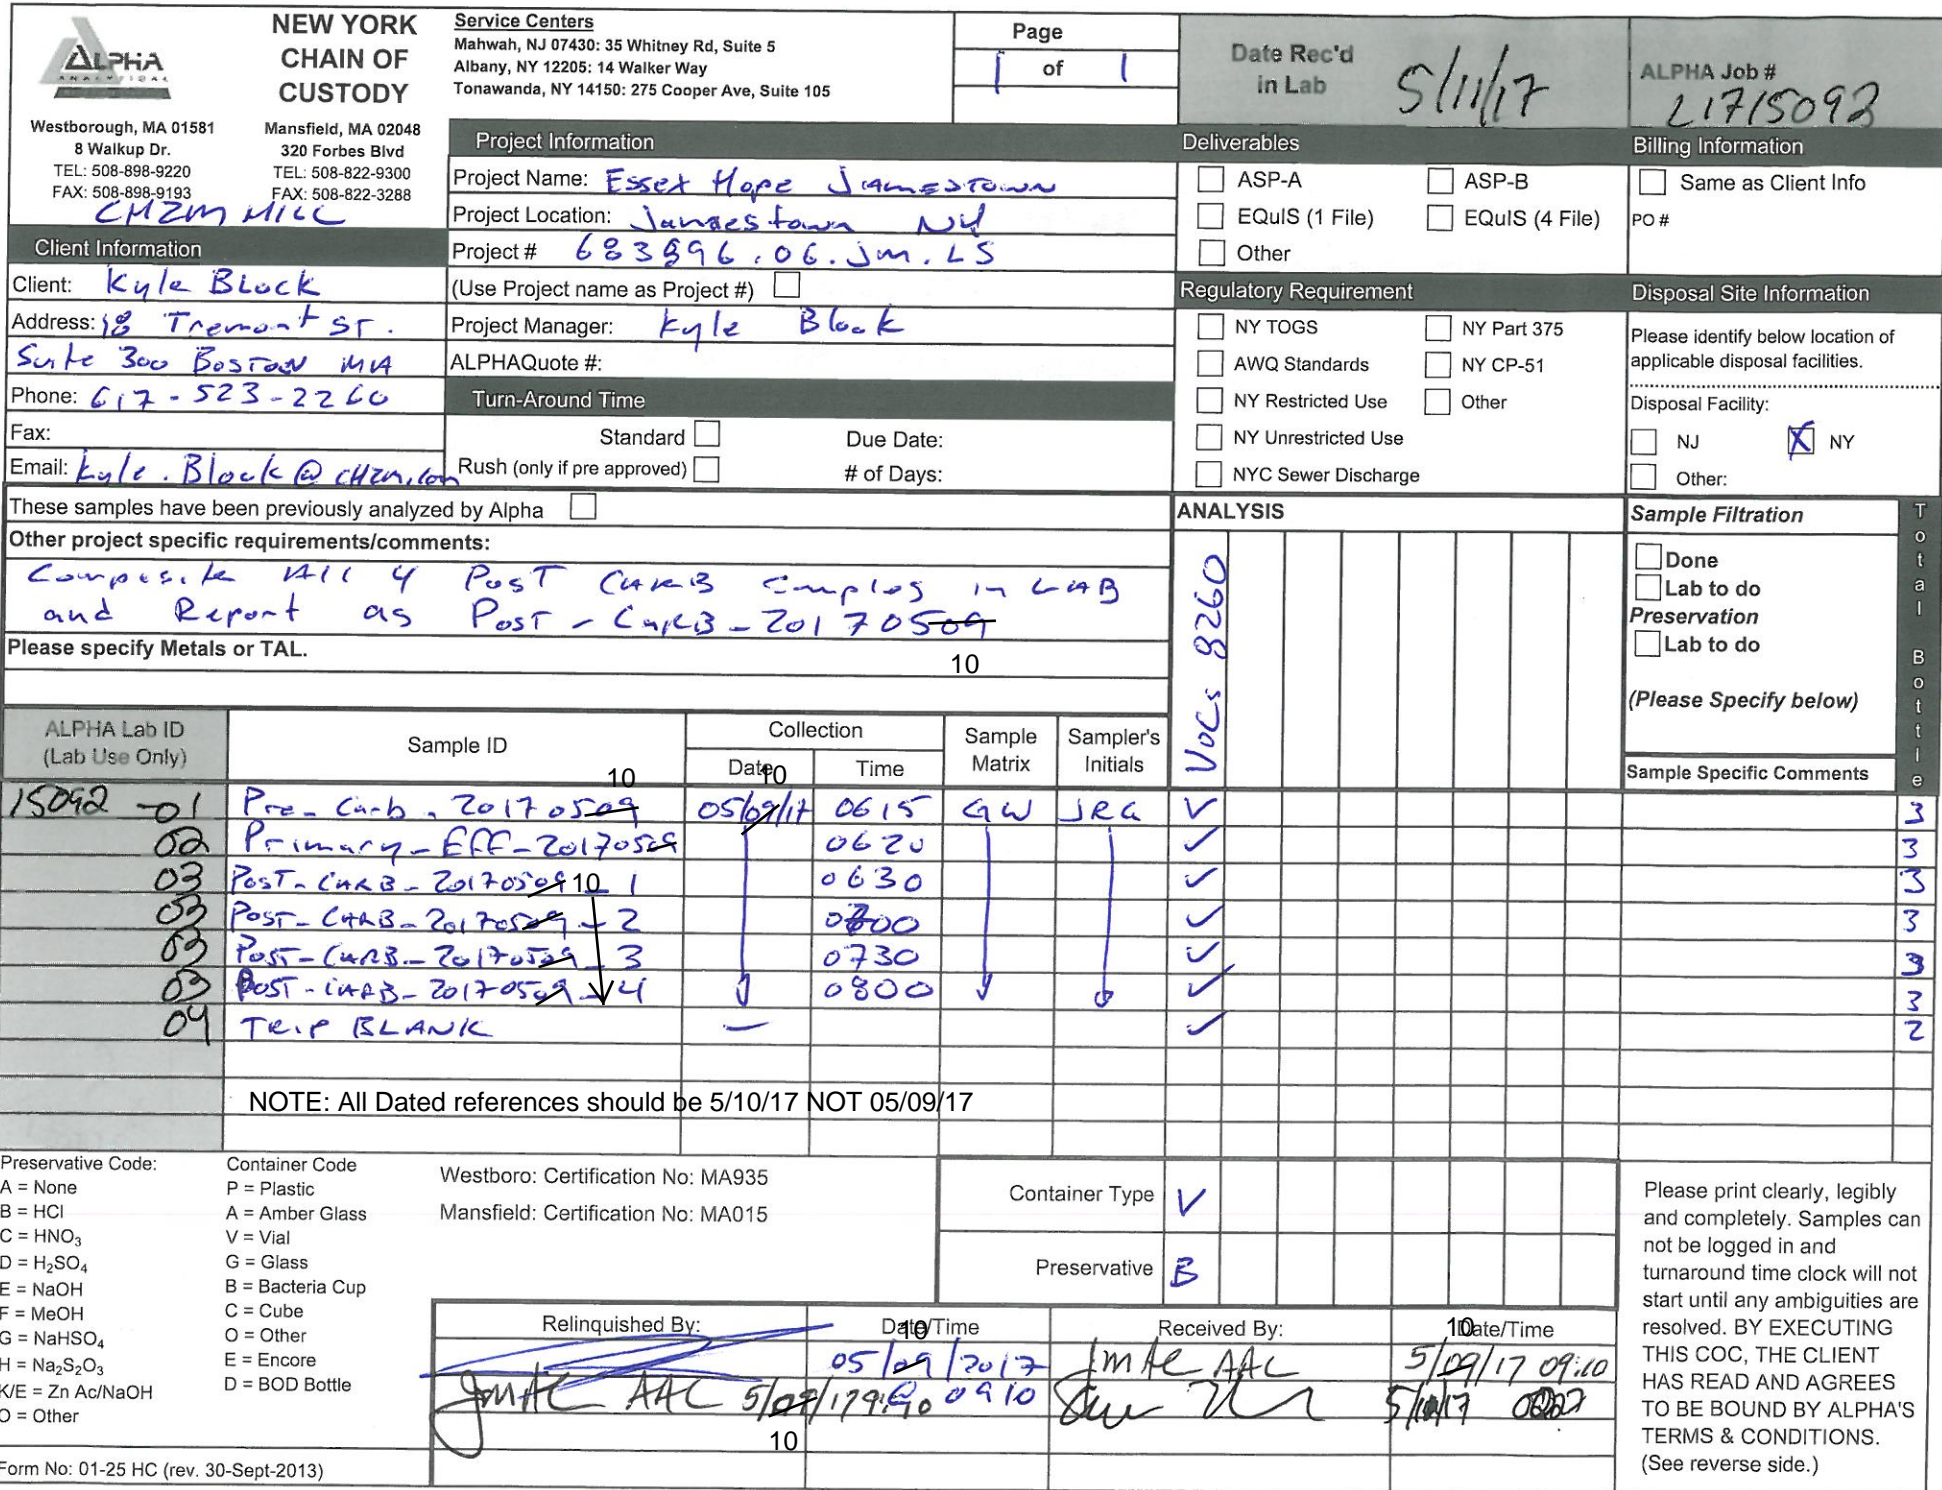 ALPHA
ANALYTICAL
NEW YORK
CHAIN OF
CUSTODY
Westborough, MA 01581
8 Walkup Dr.
TEL: 508-898-9220
FAX: 508-898-9193
Mansfield, MA 02048
320 Forbes Blvd
TEL: 508-822-9300
FAX: 508-822-3288
CH2M HILL
Service Centers
Mahwah, NJ 07430: 35 Whitney Rd, Suite 5
Albany, NY 12205: 14 Walker Way
Tonawanda, NY 14150: 275 Cooper Ave, Suite 105
Page
1 of 1
Date Rec'd
in Lab
5/11/17
ALPHA Job #
L1715092
Client Information
Client: Kyle Block
Address: 18 Tremont ST.
Suite 300 BOSTON MA
Phone: 617-523-2260
Fax:
Email: Kyle.Block@CH2M.com
Project Information
Project Name: Essex Hope JAMESTOWN
Project Location: Jamestown NY
Project # 683896.06.JM.LS
(Use Project name as Project #)
Project Manager: Kyle Block
ALPHAQuote #:
Turn-Around Time
Standard
Due Date:
Rush (only if pre approved)
# of Days:
Deliverables
ASP-A
ASP-B
EQuIS (1 File)
EQuIS (4 File)
Other
Regulatory Requirement
NY TOGS
NY Part 375
AWQ Standards
NY CP-51
NY Restricted Use
Other
NY Unrestricted Use
NYC Sewer Discharge
Billing Information
Same as Client Info
PO #
Disposal Site Information
Please identify below location of
applicable disposal facilities.
Disposal Facility:
NJ
X NY
Other:
These samples have been previously analyzed by Alpha
Other project specific requirements/comments:
Composite All 4 POST CARB samples in LAB
and Report as POST-CARB-20170509
10
Please specify Metals or TAL.
ANALYSIS
VOCs 8260
Sample Filtration
Done
Lab to do
Preservation
Lab to do
(Please Specify below)
Total Bottle
ALPHA Lab ID
(Lab Use Only)
Sample ID
Collection
Date
Time
Sample
Matrix
Sampler's
Initials
Sample Specific Comments
10
10
15092 -01 Pre-Carb-20170509 05/09/17 0615 GW JRG ✓ 3
02 Primary-Eff-20170509 0620 ✓ 3
03 POST-CARB-20170509 10 - 1 0630 ✓ 3
03 POST-CARB-20170509 - 2 0700 ✓ 3
03 POST-CARB-20170509 - 3 0730 ✓ 3
03 POST-CARB-20170509 - 4 0800 ✓ 3
04 TRIP BLANK — ✓ 2
NOTE: All Dated references should be 5/10/17 NOT 05/09/17
Preservative Code:
A = None
B = HCl
C = HNO3
D = H2SO4
E = NaOH
F = MeOH
G = NaHSO4
H = Na2S2O3
K/E = Zn Ac/NaOH
O = Other
Container Code
P = Plastic
A = Amber Glass
V = Vial
G = Glass
B = Bacteria Cup
C = Cube
O = Other
E = Encore
D = BOD Bottle
Westboro: Certification No: MA935
Mansfield: Certification No: MA015
Container Type V
Preservative B
Relinquished By:
Date/Time
10
Received By:
Date/Time
10
05/09/2017
@ 0910
AAL 5/09/17
10
AAL 5/09/17 09:10
Please print clearly, legibly
and completely. Samples can
not be logged in and
turnaround time clock will not
start until any ambiguities are
resolved. BY EXECUTING
THIS COC, THE CLIENT
HAS READ AND AGREES
TO BE BOUND BY ALPHA'S
TERMS & CONDITIONS.
(See reverse side.)
Form No: 01-25 HC (rev. 30-Sept-2013)